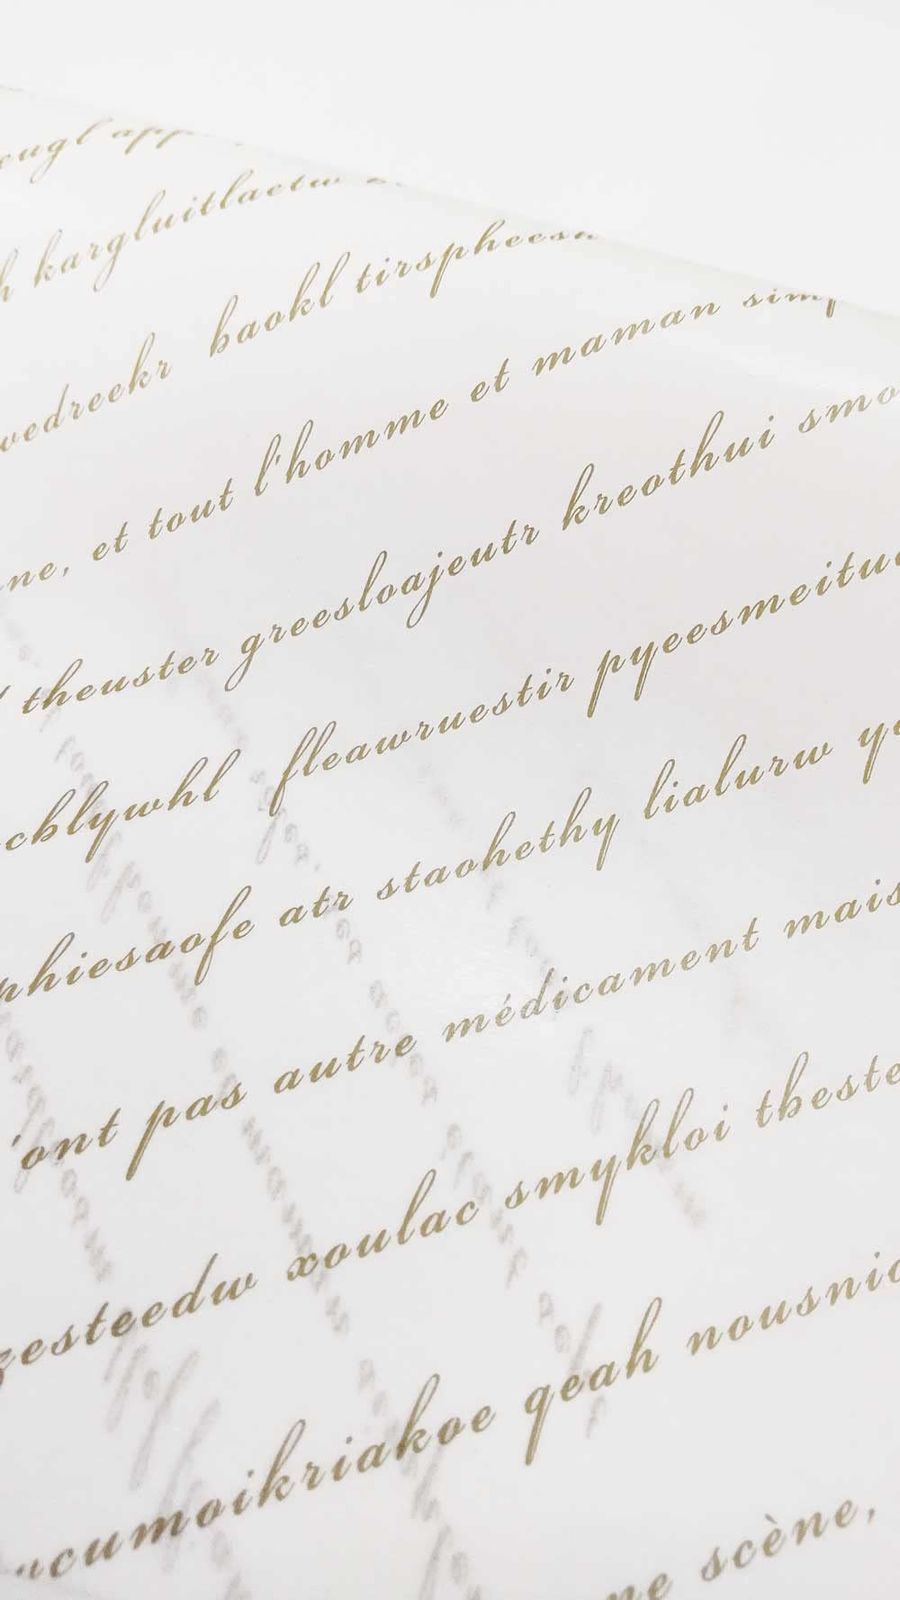 eugl app
h kargluitlaetw
vedreekr baokl tirspheesa
ne, et tout l'homme et maman simp
theuster greesloajeutr kreothui smo
cblywhl fleawruestir pyeesmeitu
phiesaofe atr staohethy lialurw ye
'ont pas autre médicament mais
zesteedw xoulac smykloi theste
cumoikriakoe qeah nousnic
ne scène,